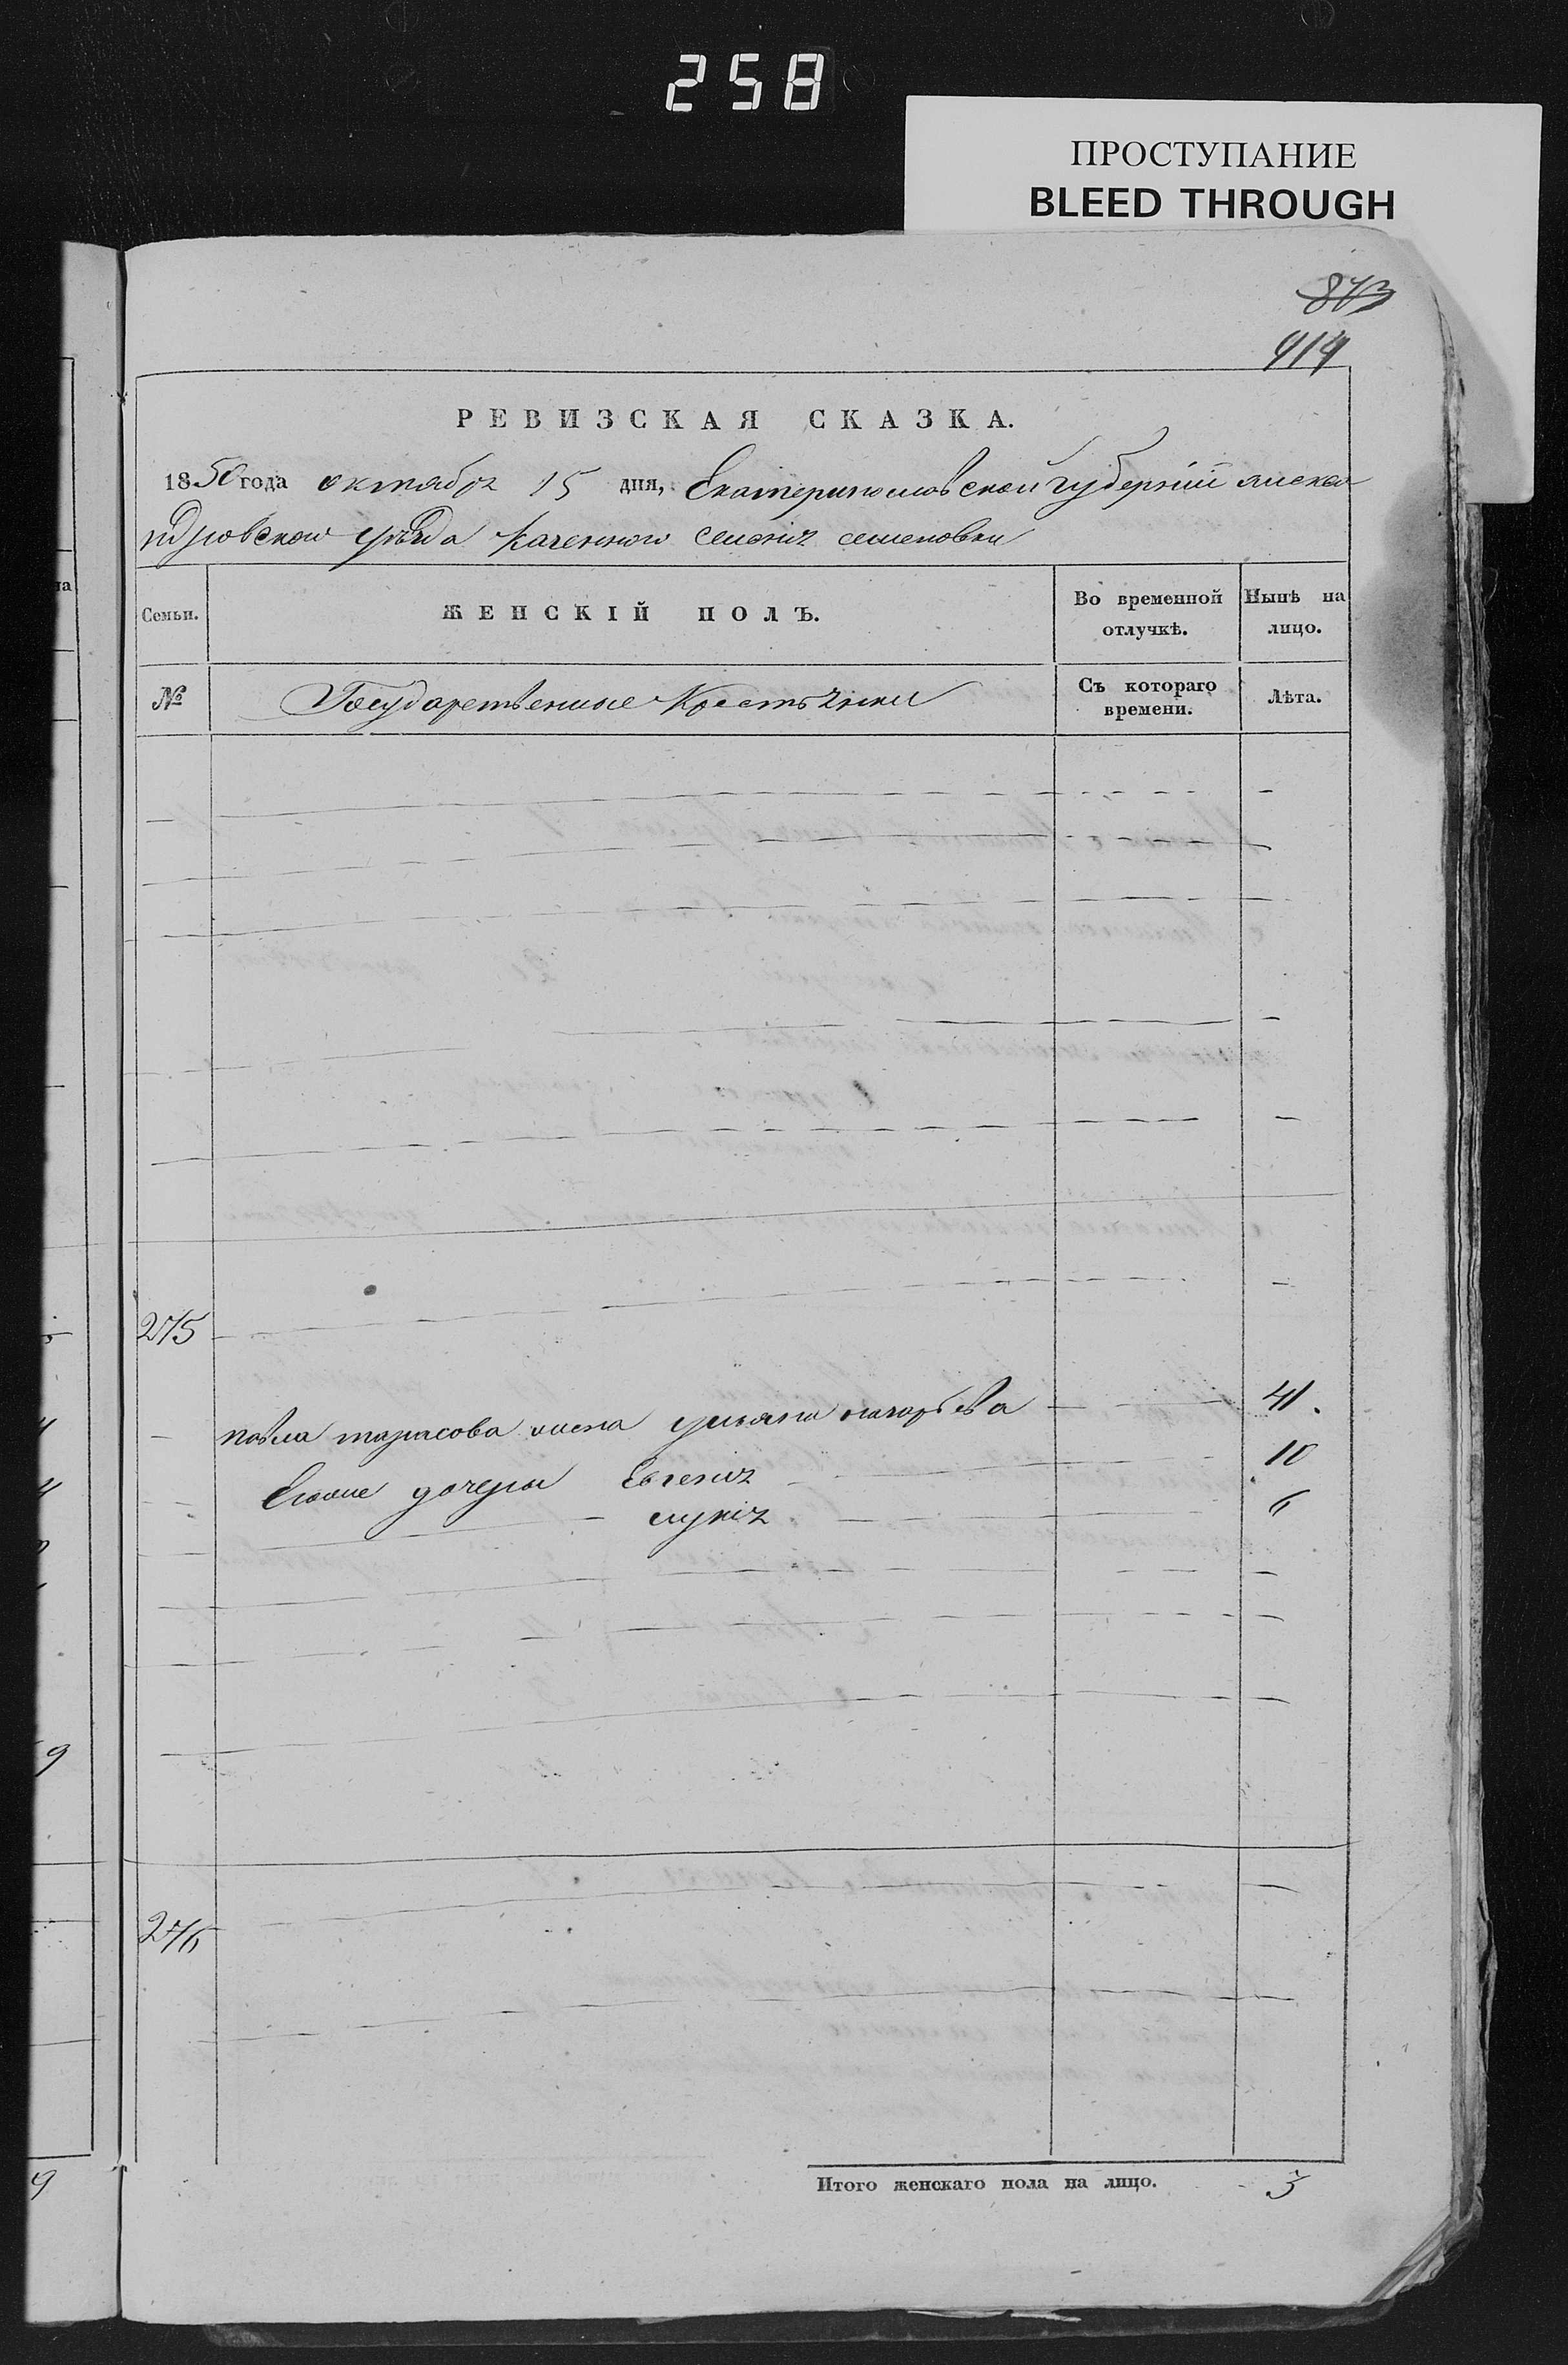 258
ПРОСТУПАНИЕ
BLEED THROUGH
873
414
РЕВИЗСКАЯ СКАЗКА.
1850 года октября 15 дня, Екатеринославской губерніи алекса
ндровскаго уѣзда казенного селенія семеновки
Семьи. ЖЕНСКІЙ ПОЛЪ. Во временной отлучкѣ. Нынѣ на лицо.
№ Государственные Крестьянки Съ котораго времени. Лѣта.
275
павла тарасова жена ульяна 41.
Еговые дочери Евгенія 10
6
276
Итого женскаго пола на лицо. 3